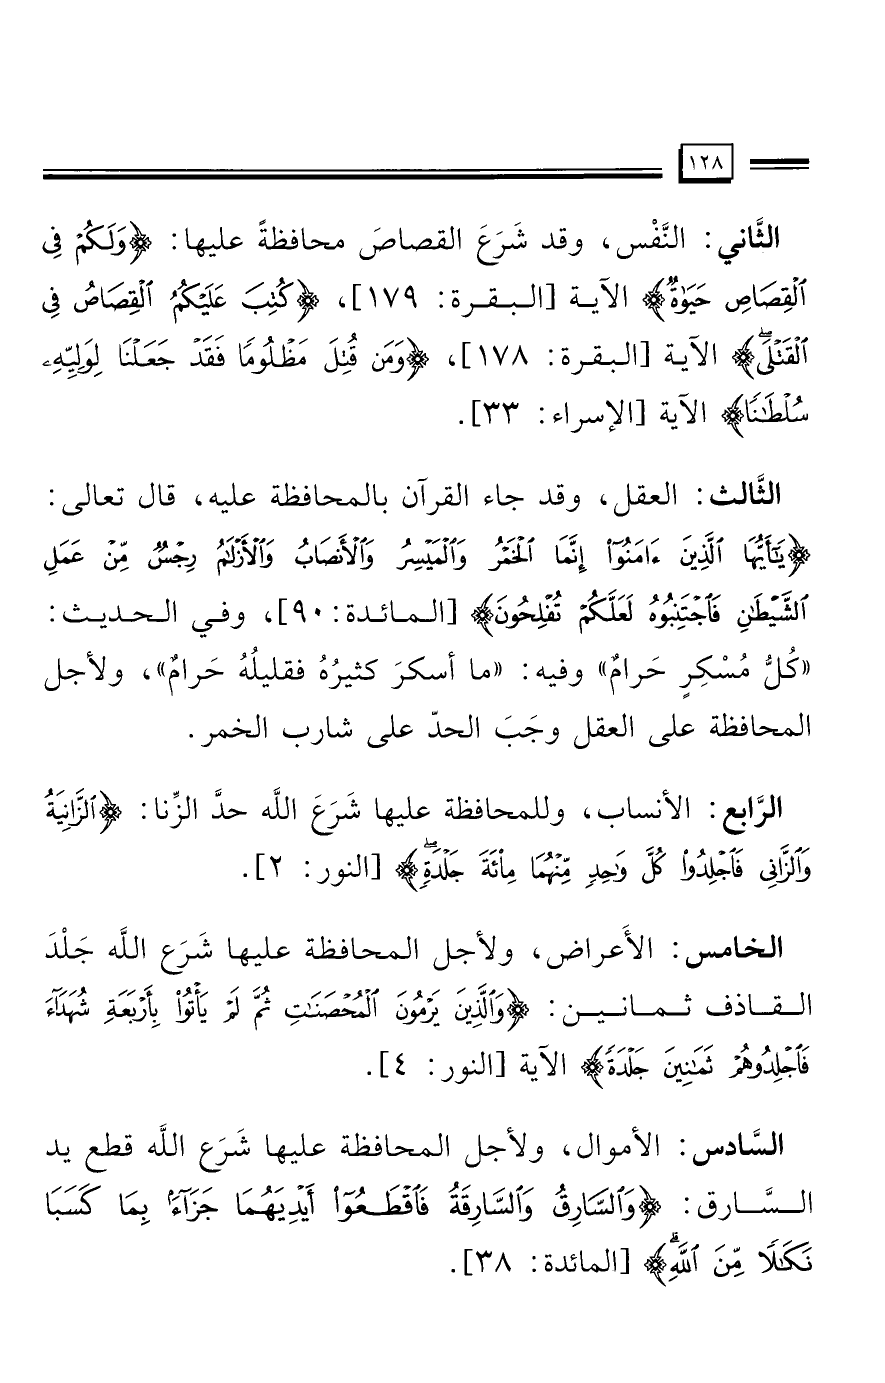 ١٢٨
الثَّاني: النَّفْس، وقد شَرَعَ القصاصَ محافظةً عليها: ﴿وَلَكُمْ فِى
ٱلْقِصَاصِ حَيَوٰةٌ﴾ الآية [البقرة: ١٧٩]، ﴿كُتِبَ عَلَيْكُمُ ٱلْقِصَاصُ فِى
ٱلْقَتْلَىۖ﴾ الآية [البقرة: ١٧٨]، ﴿وَمَن قُتِلَ مَظْلُومًا فَقَدْ جَعَلْنَا لِوَلِيِّهِۦ
سُلْطَٰنًا﴾ الآية [الإسراء: ٣٣].
الثَّالث: العقل، وقد جاء القرآن بالمحافظة عليه، قال تعالى:
﴿يَٰٓأَيُّهَا ٱلَّذِينَ ءَامَنُوٓا۟ إِنَّمَا ٱلْخَمْرُ وَٱلْمَيْسِرُ وَٱلْأَنصَابُ وَٱلْأَزْلَٰمُ رِجْسٌ مِّنْ عَمَلِ
ٱلشَّيْطَٰنِ فَٱجْتَنِبُوهُ لَعَلَّكُمْ تُفْلِحُونَ﴾ [المائدة: ٩٠]، وفي الحديث:
«كُلُّ مُسْكِرٍ حَرامٌ» وفيه: «ما أسكرَ كثيرُهُ فقليلُهُ حَرامٌ»، ولأجل
المحافظة على العقل وجَبَ الحدّ على شارب الخمر.
الرَّابع: الأنساب، وللمحافظة عليها شَرَعَ اللَّه حدَّ الزِّنا: ﴿ٱلزَّانِيَةُ
وَٱلزَّانِى فَٱجْلِدُوا۟ كُلَّ وَٰحِدٍ مِّنْهُمَا مِا۟ئَةَ جَلْدَةٍۖ﴾ [النور: ٢].
الخامس: الأَعراض، ولأجل المحافظة عليها شَرَع اللَّه جَلْدَ
القاذف ثمانين: ﴿وَٱلَّذِينَ يَرْمُونَ ٱلْمُحْصَنَٰتِ ثُمَّ لَمْ يَأْتُوا۟ بِأَرْبَعَةِ شُهَدَآءَ
فَٱجْلِدُوهُمْ ثَمَٰنِينَ جَلْدَةً﴾ الآية [النور: ٤].
السَّادس: الأموال، ولأجل المحافظة عليها شَرَع اللَّه قطع يد
السَّارق: ﴿وَٱلسَّارِقُ وَٱلسَّارِقَةُ فَٱقْطَعُوٓا۟ أَيْدِيَهُمَا جَزَآءًۢ بِمَا كَسَبَا
نَكَٰلًا مِّنَ ٱللَّهِۗ﴾ [المائدة: ٣٨].